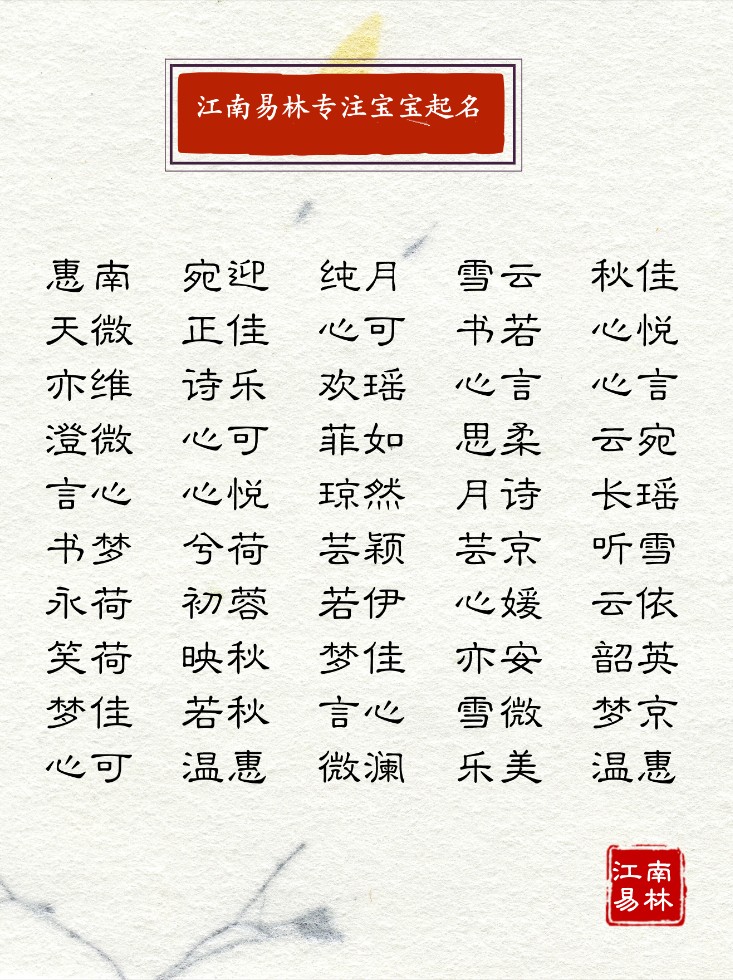 江南易林专注宝宝起名
惠南 宛迎 纯月 雪云 秋佳
天微 正佳 心可 书若 心悦
亦维 诗乐 欢瑶 心言 心言
澄微 心可 菲如 思柔 云宛
言心 心悦 琼然 月诗 长瑶
书梦 兮荷 芸颖 芸京 听雪
永荷 初蓉 若伊 心媛 云依
笑荷 映秋 梦佳 亦安 韶英
梦佳 若秋 言心 雪微 梦京
心可 温惠 微澜 乐美 温惠
江南
易林